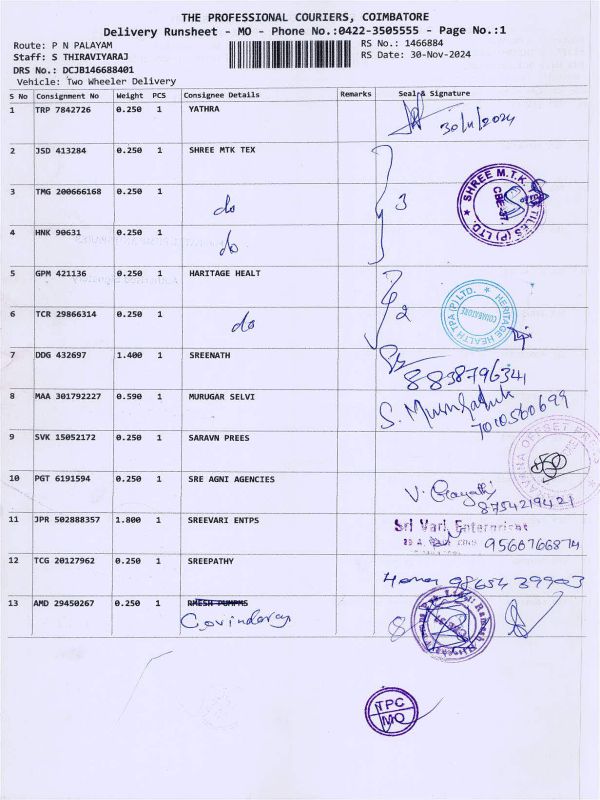 THE PROFESSIONAL COURIERS, COIMBATORE
Delivery Runsheet - MO - Phone No.:0422-3505555 - Page No.:1
Route: P N PALAYAM
RS No.: 1466884
Staff: S THIRAVIYARAJ
RS Date: 30-Nov-2024
DRS No.: DCJB146688401
Vehicle: Two Wheeler Delivery
S No Consignment No Weight PCS Consignee Details Remarks Seal & Signature
1 TRP 7842726 0.250 1 YATHRA 30/11/2024
2 JSD 413284 0.250 1 SHREE MTK TEX
3 TMG 200666168 0.250 1 do 3
SHREE M.T.K. TEXTILES (P) LTD. CBE-37
4 HNK 90631 0.250 1 do
5 GPM 421136 0.250 1 HARITAGE HEALT
6 TCR 29866314 0.250 1 do 2
HERITAGE HEALTH TPA (P) LTD. COIMBATORE
7 DDG 432697 1.400 1 SREENATH 8838796341
8 MAA 301792227 0.590 1 MURUGAR SELVI 7010560699
9 SVK 15052172 0.250 1 SARAVN PREES
OFFSET
10 PGT 6191594 0.250 1 SRE AGNI AGENCIES V. Gayathri 8754219421
11 JPR 502888357 1.800 1 SREEVARI ENTPS Sri Vari Enterprises 9566766874
12 TCG 20127962 0.250 1 SREEPATHY 98654 39903
13 AMD 29450267 0.250 1 RMESH PUMPMS
Govindaraj
TPC
MO